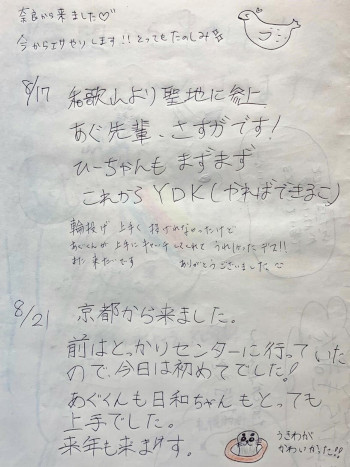 奈良から来ました♡
今からエサやりします!!とってもたのしみ
8/17 和歌山より聖地に参上
あぐ先輩、さすがです!
ひーちゃんも まずまず
これから YDK(やればできるこ)
輪投げ 上手く 投げれなかったけど
あぐくんが 上手に キャッチしてくれて うれしかったデす!!
また 来たいです ありがとうございました
8/21 京都から来ました。
前はとっかりセンターに行っていた
ので、今日は初めてでした!
あぐくんも日和ちゃんもとっても
上手でした。
来年も来ます。
うきわが
かわいかった!!